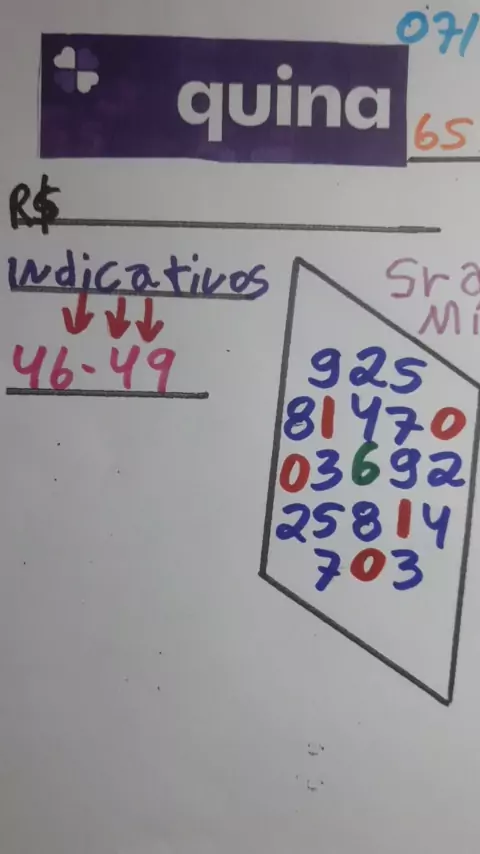 071
quina
65
R$
indicativos
Sra
Mi
46-49
925
81470
03692
25814
703